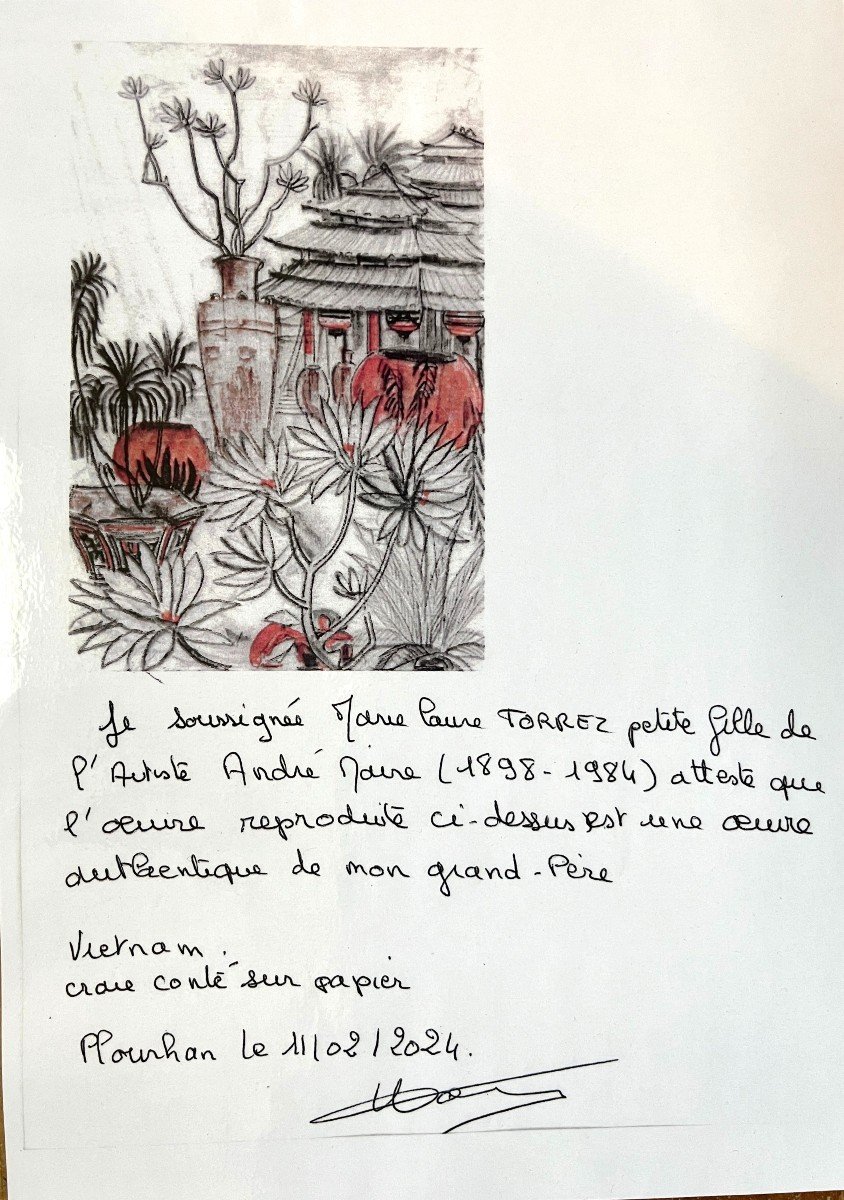 Je soussignée Marie Laure TORREZ petite fille de
l'Artiste André Maire (1898-1984) atteste que
l'œuvre reproduite ci-dessus est une œuvre
authentique de mon grand-Père
Vietnam.
craie conté sur papier
Plourhan le 11/02/2024.